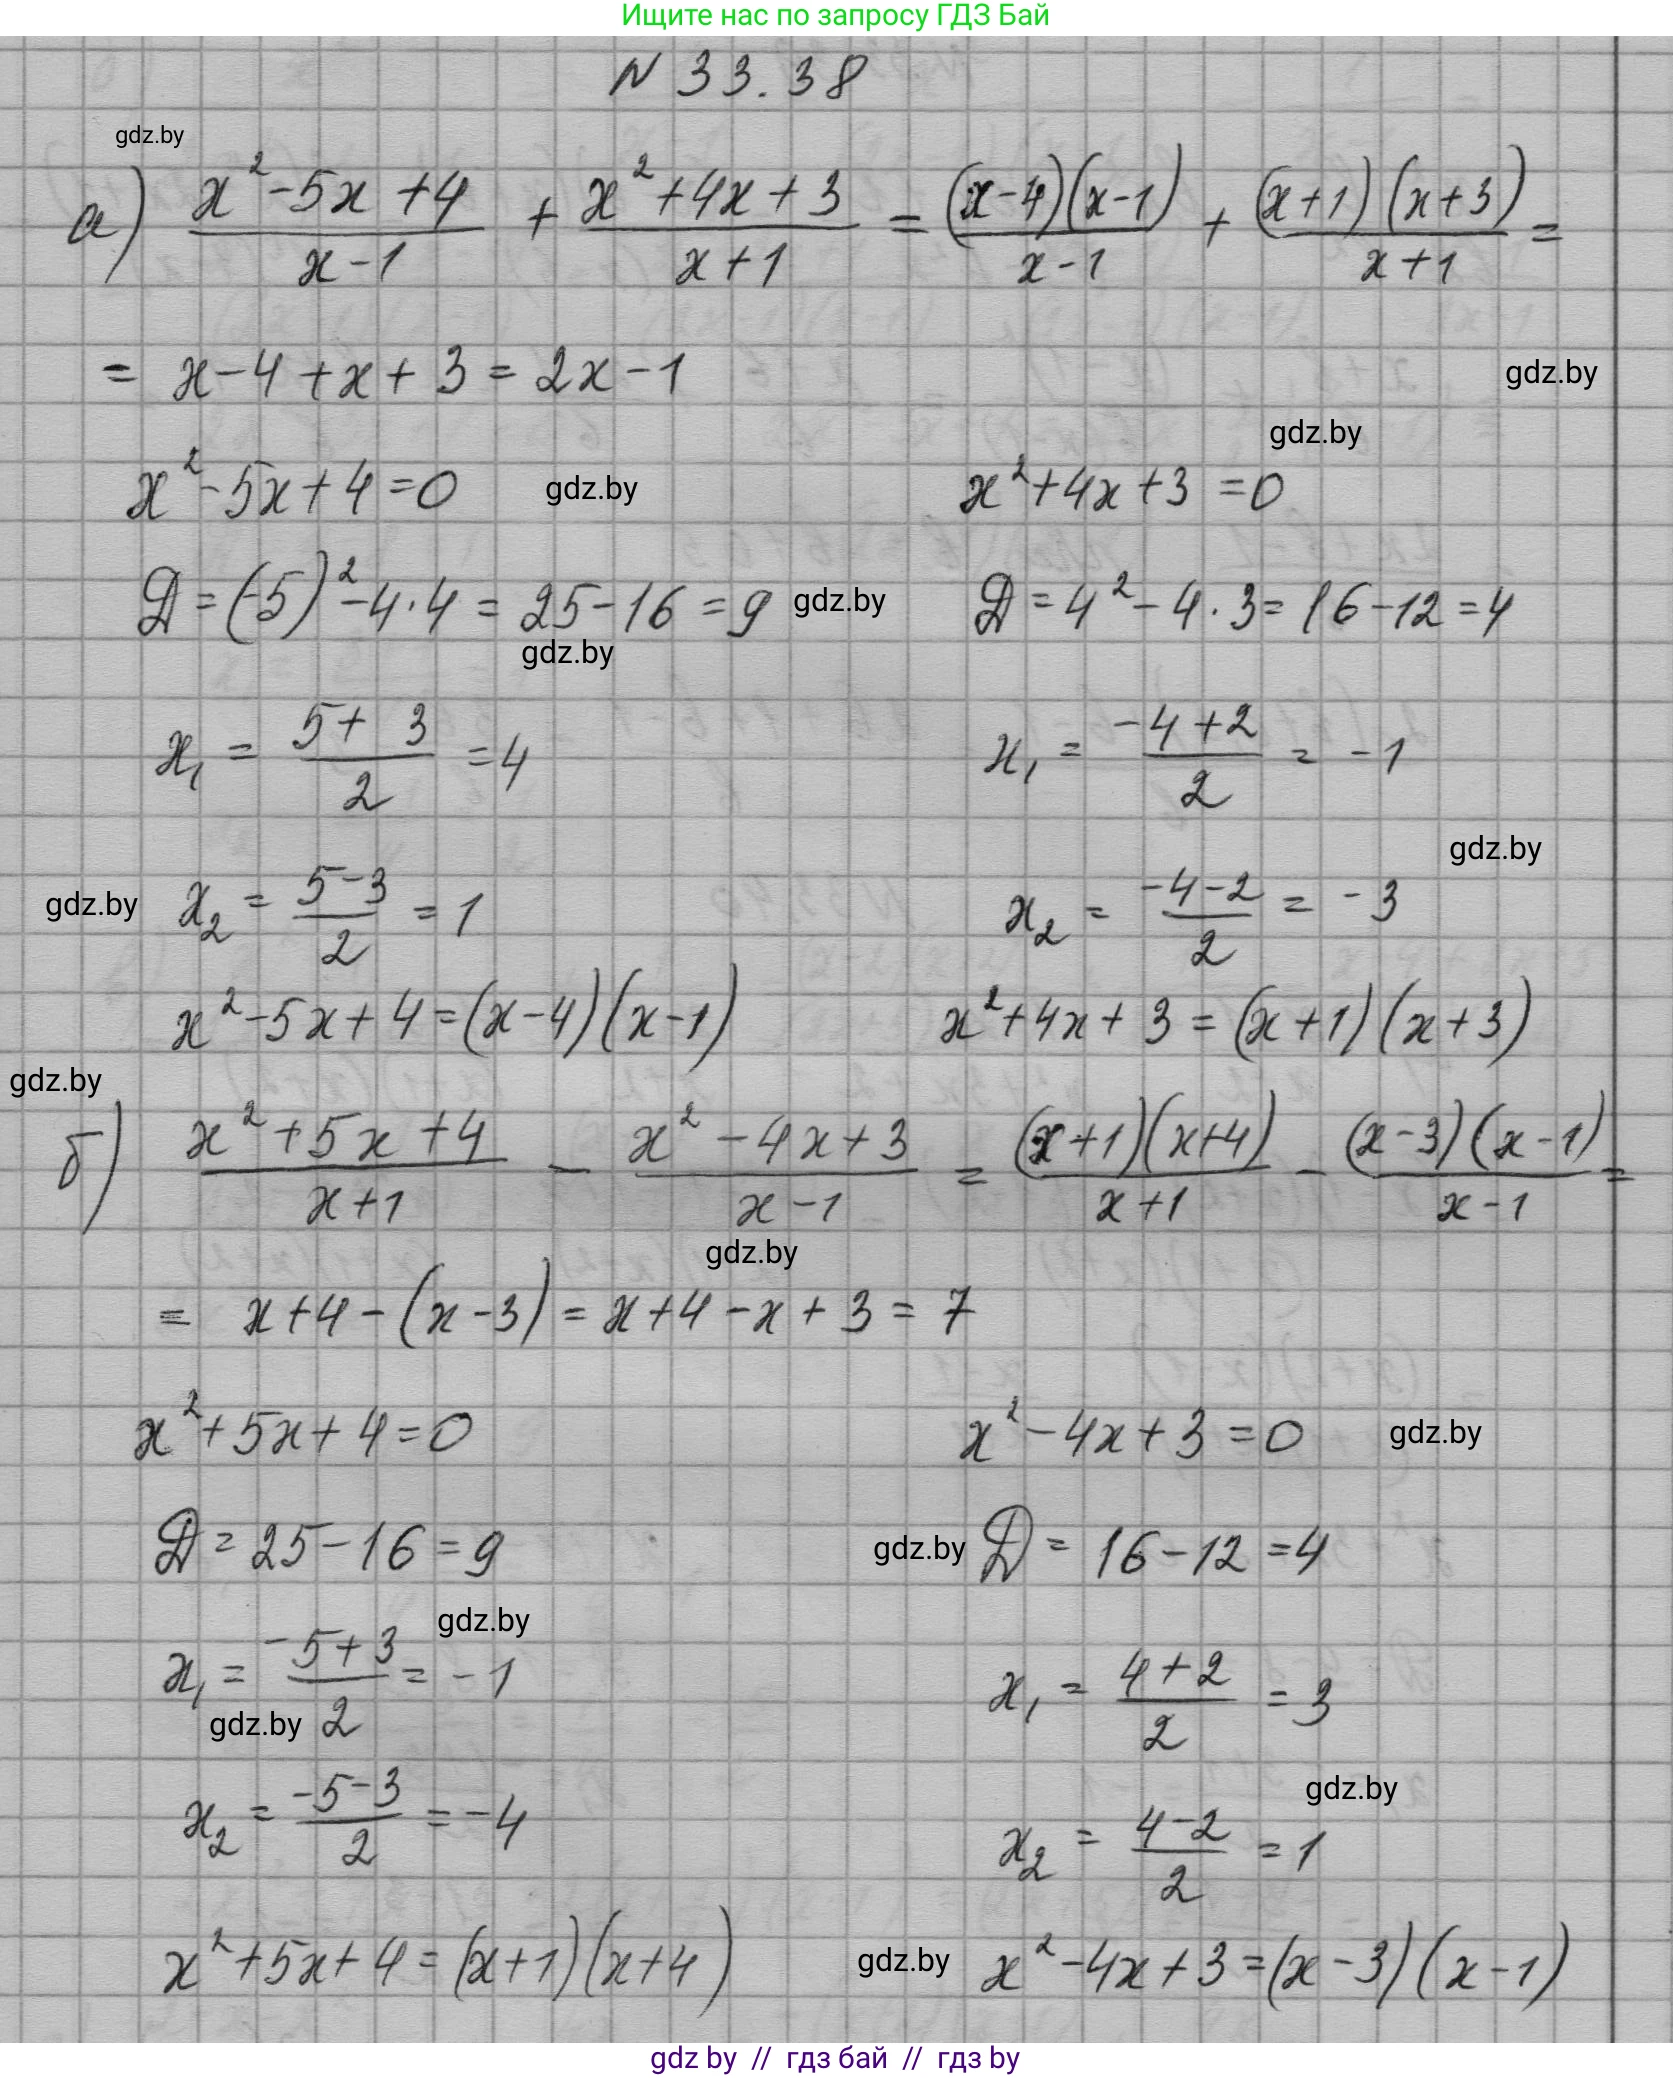 Ищите нас по запросу ГДЗ Бай
N 33.38
gdz.by
а) (x² - 5x + 4)/(x - 1) + (x² + 4x + 3)/(x + 1) = ((x - 4)(x - 1))/(x - 1) + ((x + 1)(x + 3))/(x + 1) =
= x - 4 + x + 3 = 2x - 1 gdz.by
gdz.by
x² - 5x + 4 = 0 gdz.by x² + 4x + 3 = 0
D = (-5)² - 4·4 = 25 - 16 = 9 gdz.by D = 4² - 4·3 = 16 - 12 = 4
gdz.by
x₁ = (5 + 3)/2 = 4 x₁ = (-4 + 2)/2 = -1
gdz.by
gdz.by x₂ = (5 - 3)/2 = 1 x₂ = (-4 - 2)/2 = -3
x² - 5x + 4 = (x - 4)(x - 1) x² + 4x + 3 = (x + 1)(x + 3)
gdz.by
б) (x² + 5x + 4)/(x + 1) - (x² - 4x + 3)/(x - 1) = ((x + 1)(x + 4))/(x + 1) - ((x - 3)(x - 1))/(x - 1) =
gdz.by
= x + 4 - (x - 3) = x + 4 - x + 3 = 7
x² + 5x + 4 = 0 x² - 4x + 3 = 0 gdz.by
D = 25 - 16 = 9 gdz.by D = 16 - 12 = 4
gdz.by
x₁ = (-5 + 3)/2 = -1 x₁ = (4 + 2)/2 = 3
gdz.by
gdz.by
x₂ = (-5 - 3)/2 = -4 x₂ = (4 - 2)/2 = 1
x² + 5x + 4 = (x + 1)(x + 4) gdz.by x² - 4x + 3 = (x - 3)(x - 1)
gdz by // гдз бай // гдз by